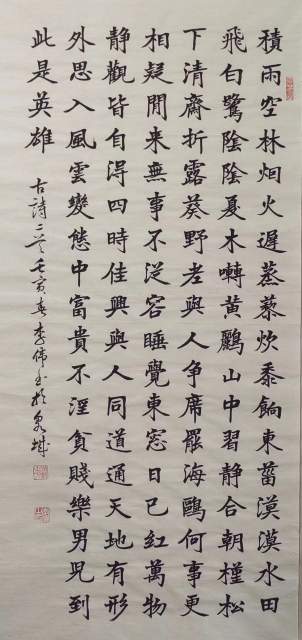 積雨空林烟火遲蒸藜炊黍餉東菑漠漠水田
飛白鷺陰陰夏木囀黄鸝山中習静合朝槿松
下清齋折露葵野老與人争席罷海鷗何事更
相疑閒来無事不從容睡覺東窓日已紅萬物
静觀皆自得四時佳興與人同道通天地有形
外思入風雲變態中富貴不淫貧賤樂男兒到
此是英雄 古詩二首壬寅春李偉書於泉城